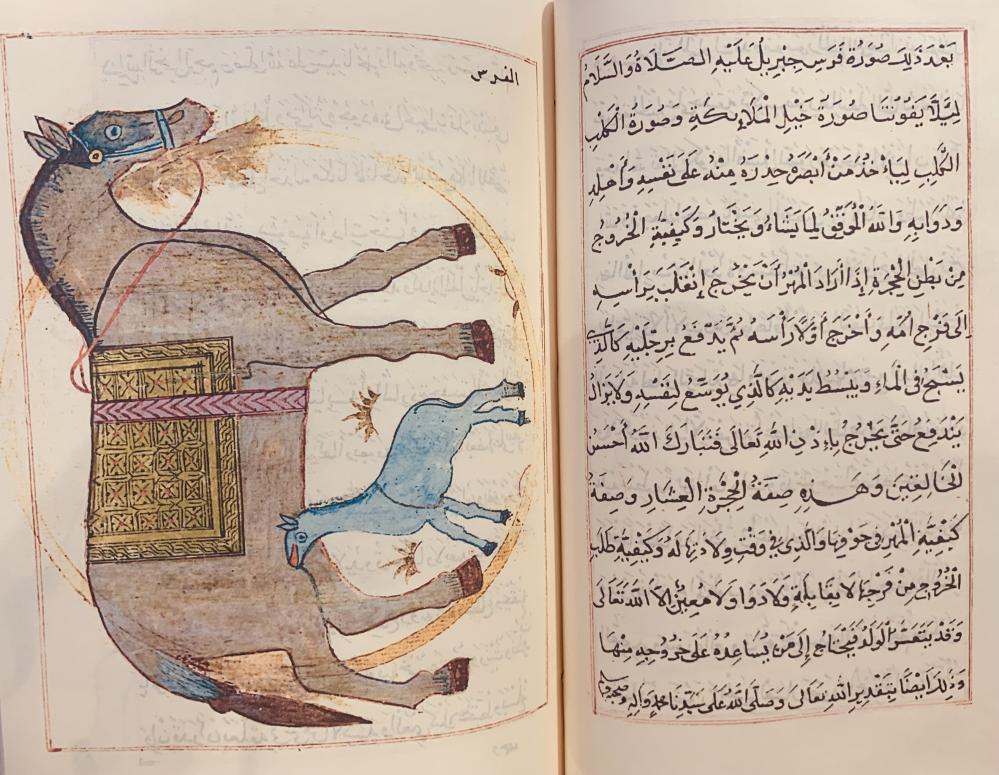 بَعْدَ ذَلِكَ صُورَةُ فَرَسِ جِبْرِيلَ عَلَيْهِ الصَّلَاةُ وَالسَّلَامُ
لِيَلَّا يَفُوتَنَا صُورَةُ خَيْلِ الْمَلَائِكَةِ وَصُورَةُ الْكَلْبِ
الْكَلِبِ لِيَاءْخُذَ مَنْ أَبْصَرَهُ حِذْرَهُ مِنْهُ عَلَى نَفْسِهِ وَأَهْلِهِ
وَدَوَابِهِ وَاللَّهُ الْمُوَفِّقُ لِمَا يَشَاءُ وَيَخْتَارُ وَكَيْفِيَّةِ الْخُرُوجُ
مِنْ بَطْنِ الْحِجْرَةِ إِذَا اَرَادَ الْمُهْرُ أَنْ يَخْرُجَ إِنْقَلَبَ بِرَأْسِهِ
اِلَى فَرْجِ أُمِّهِ وَأَخْرَجَ أَوَّلًا رَأْسَهُ ثُمَّ يَدْفَعُ بِرِجْلَيْهِ كَالَّذِي
يَسْبَحُ فِي الْمَاءِ وَيَبْسُطُ يَدَيْهِ كَالَّذِي يُوَسِّعُ لِنَفْسِهِ وَلَا يَزَالُ
يَنْدَفِعُ حَتَّى يَخْرُجَ بِإِذْنِ اللَّهِ تَعَالَى فَتَبَارَكَ اللَّهُ أَحْسَنُ
الْخَالِقِينَ وَهَذِهِ صِفَةُ الْحِجْرَةِ الْعِشَارِ وَصِفَةُ
كَيْفِيَّةِ الْمُهْرِ فِي جَوْفِهَا وَالَّذِي فِي وَقْتِ وِلَادَتِهَا لَهُ وَكَيْفِيَّةِ طَلَبِ
الْخُرُوجِ مِنْ فَرْجِهَا لَا يُقَابِلُهُ وَلَا دَوَا وَلَا مُعِينٌ إِلَّا اللَّهَ تَعَالَى
وَقَدْ يَتَعَسَّرُ الْوَلَدُ فَيَحْتَاجُ إِلَى مَنْ يُسَاعِدُهُ عَلَى خُرُوجِهِ مِنْهَا
وَذَلِكَ أَيْضًا بِتَقْدِيرِ اللَّهِ تَعَالَى وَصَلَّى اللَّهُ عَلَى سَيِّدِنَا مُحَمَّدٍ وَآلِهِ وَصَحْبِهِ وَسَلَّمَ
الفرس